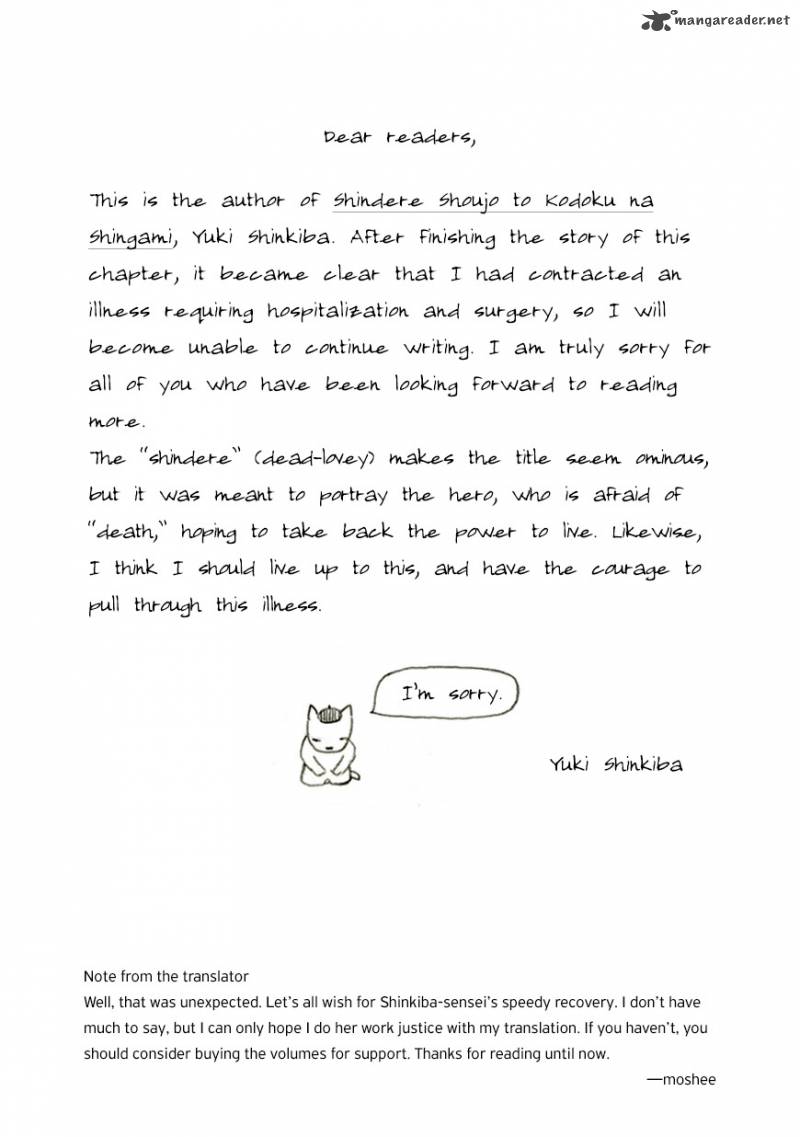 mangareader.net
Dear readers,
This is the author of Shindere Shoujo to Kodoku na
Shingami, Yuki Shinkiba. After finishing the story of this
chapter, it became clear that I had contracted an
illness requiring hospitalization and surgery, so I will
become unable to continue writing. I am truly sorry for
all of you who have been looking forward to reading
more.
The "shindere" (dead-lovey) makes the title seem ominous,
but it was meant to portray the hero, who is afraid of
"death," hoping to take back the power to live. Likewise,
I think I should live up to this, and have the courage to
pull through this illness.
I'm sorry.
Yuki Shinkiba
Note from the translator
Well, that was unexpected. Let's all wish for Shinkiba-sensei's speedy recovery. I don't have
much to say, but I can only hope I do her work justice with my translation. If you haven't, you
should consider buying the volumes for support. Thanks for reading until now.
—moshee